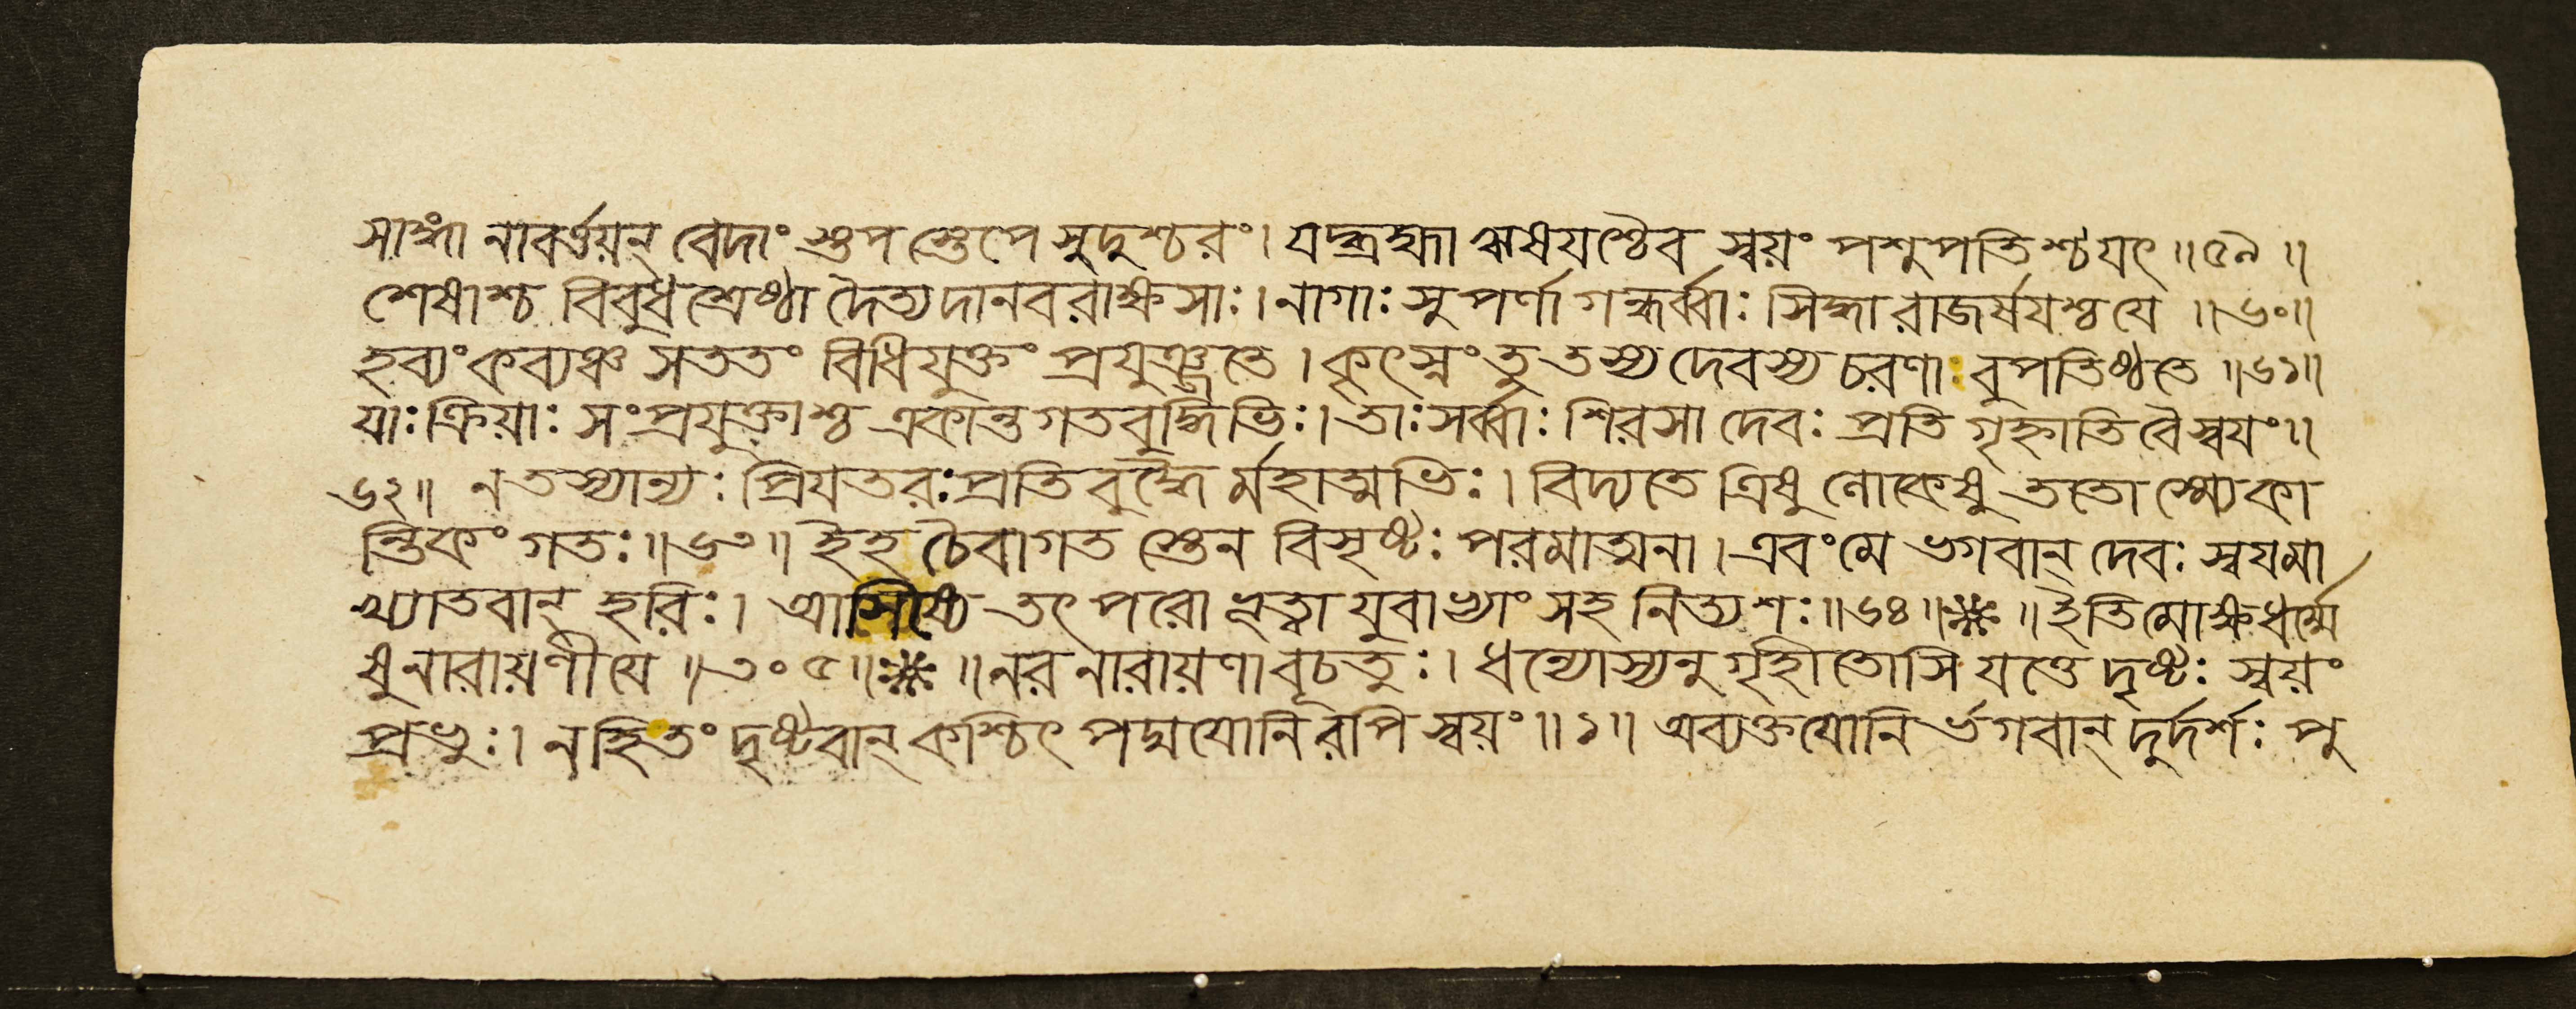 সাঙ্গা নাবর্ত্তয়ন্ বেদাং স্তপ স্তেপে সুদুশ্চরং। যদ্ব্রহ্মা ঋষযশ্চৈব স্বয়ং পশুপতিশ্চযৎ ॥৫৯॥
শেষাশ্চ বিবুধশ্রেষ্ঠা দৈত্যদানবরাক্ষসাঃ। নাগাঃ সুপর্ণা গন্ধর্ব্বাঃ সিদ্ধা রাজর্ষযশ্চ যে ॥৬০॥
হব্যং কব্যঞ্চ সততং বিধিযুক্তং প্রযুঞ্জতে। কৃৎস্নং তু তস্য দেবস্য চরণাবুপতিষ্ঠতে ॥৬১॥
যাঃ ক্রিয়াঃ সংপ্রযুক্তাশ্চ একান্তগতবুদ্ধিভিঃ। তাঃ সর্ব্বাঃ শিরসা দেবঃ প্রতি গৃহ্নাতি বৈ স্বযং॥
৬২॥ ন তস্যান্যঃ প্রিযতরঃ প্রতিবুদ্ধৈ র্মহাত্মভিঃ। বিদ্যতে ত্রিষু লোকেষু ততো স্ম্যেকা
ন্তিকং গতঃ॥৬৩॥ ইহ চৈবাগত স্তেন বিসৃষ্টঃ পরমাত্মনা। এবং মে ভগবান্ দেবঃ স্বযমা
খ্যাতবান্ হরিঃ। আসিষ্যে তৎ পরো ভূত্বা যুবাভ্যাং সহ নিত্যশঃ॥৬৪॥ ॥ইতি মোক্ষধর্ম্মে
ষু নারায়ণীযে ॥৩০৫॥ ॥নরনারায়ণাবূচতুঃ। ধন্যোস্যনুগৃহীতোসি যত্তে দৃষ্টঃ স্বয়ং
প্রভুঃ। ন হি তং দৃষ্টবান্ কশ্চিৎ পদ্মযোনিরপি স্বয়ং॥১॥ অব্যক্তযোনি র্ভগবান্ দুর্দর্শঃ পু